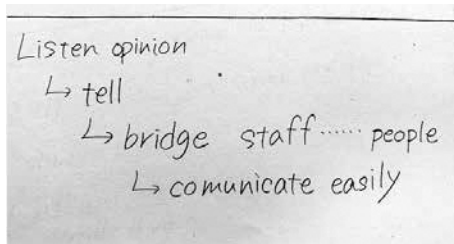 Listen opinion
↳ tell
↳ bridge staff ...... people
↳ comunicate easily